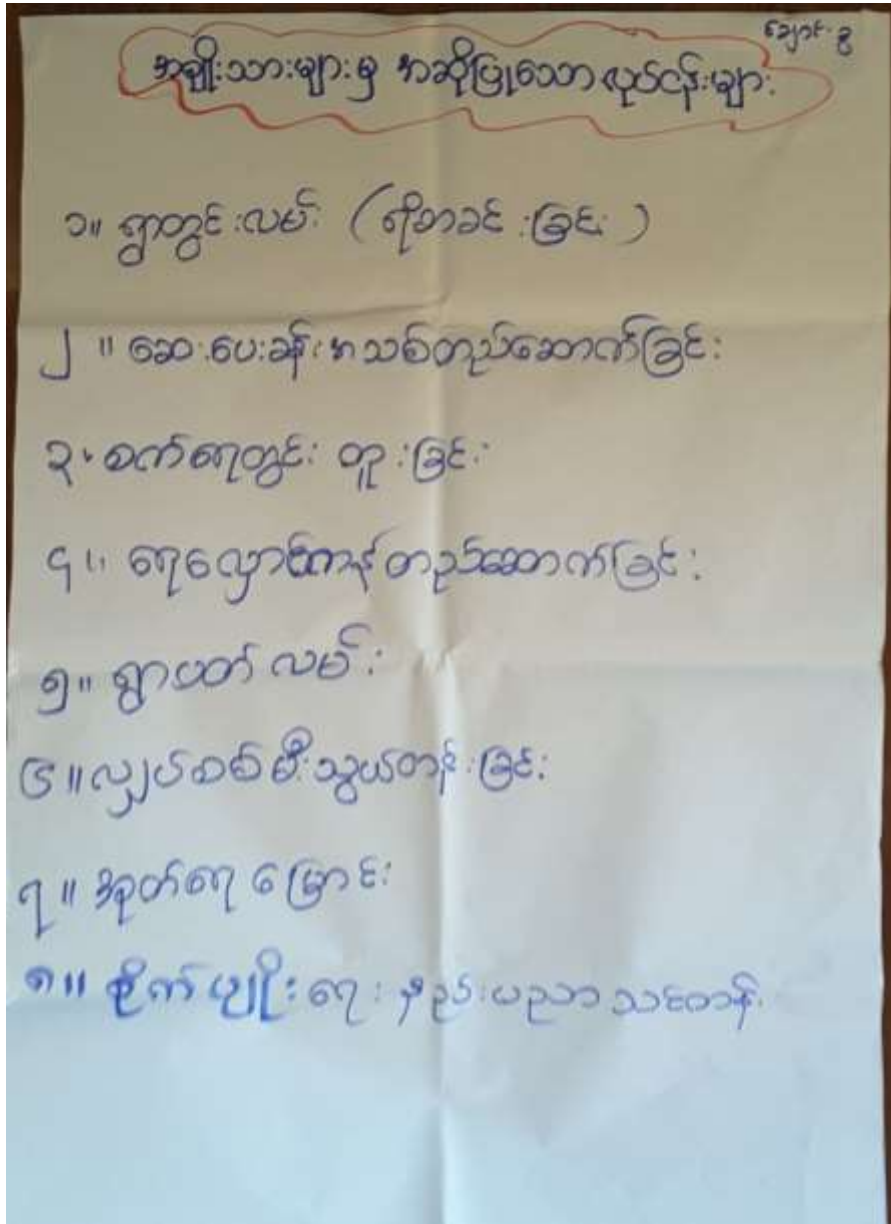 ချောင်းခွ
အမျိုးသားများမှ အဆိုပြုသော လုပ်ငန်းများ
၁။ ရွာတွင်းလမ်း (ဂဝံခင်းခြင်း)
၂။ ဆေးပေးခန်းအသစ်တည်ဆောက်ခြင်း
၃။ စက်ရေတွင်း တူးခြင်း
၄။ ရေလှောင်ကန်တည်ဆောက်ခြင်း
၅။ ရွာပတ်လမ်း
၆။ လျှပ်စစ်မီးသွယ်တန်းခြင်း
၇။ အုတ်ရေမြောင်း
၈။ စိုက်ပျိုးရေး နည်းပညာသင်တန်း